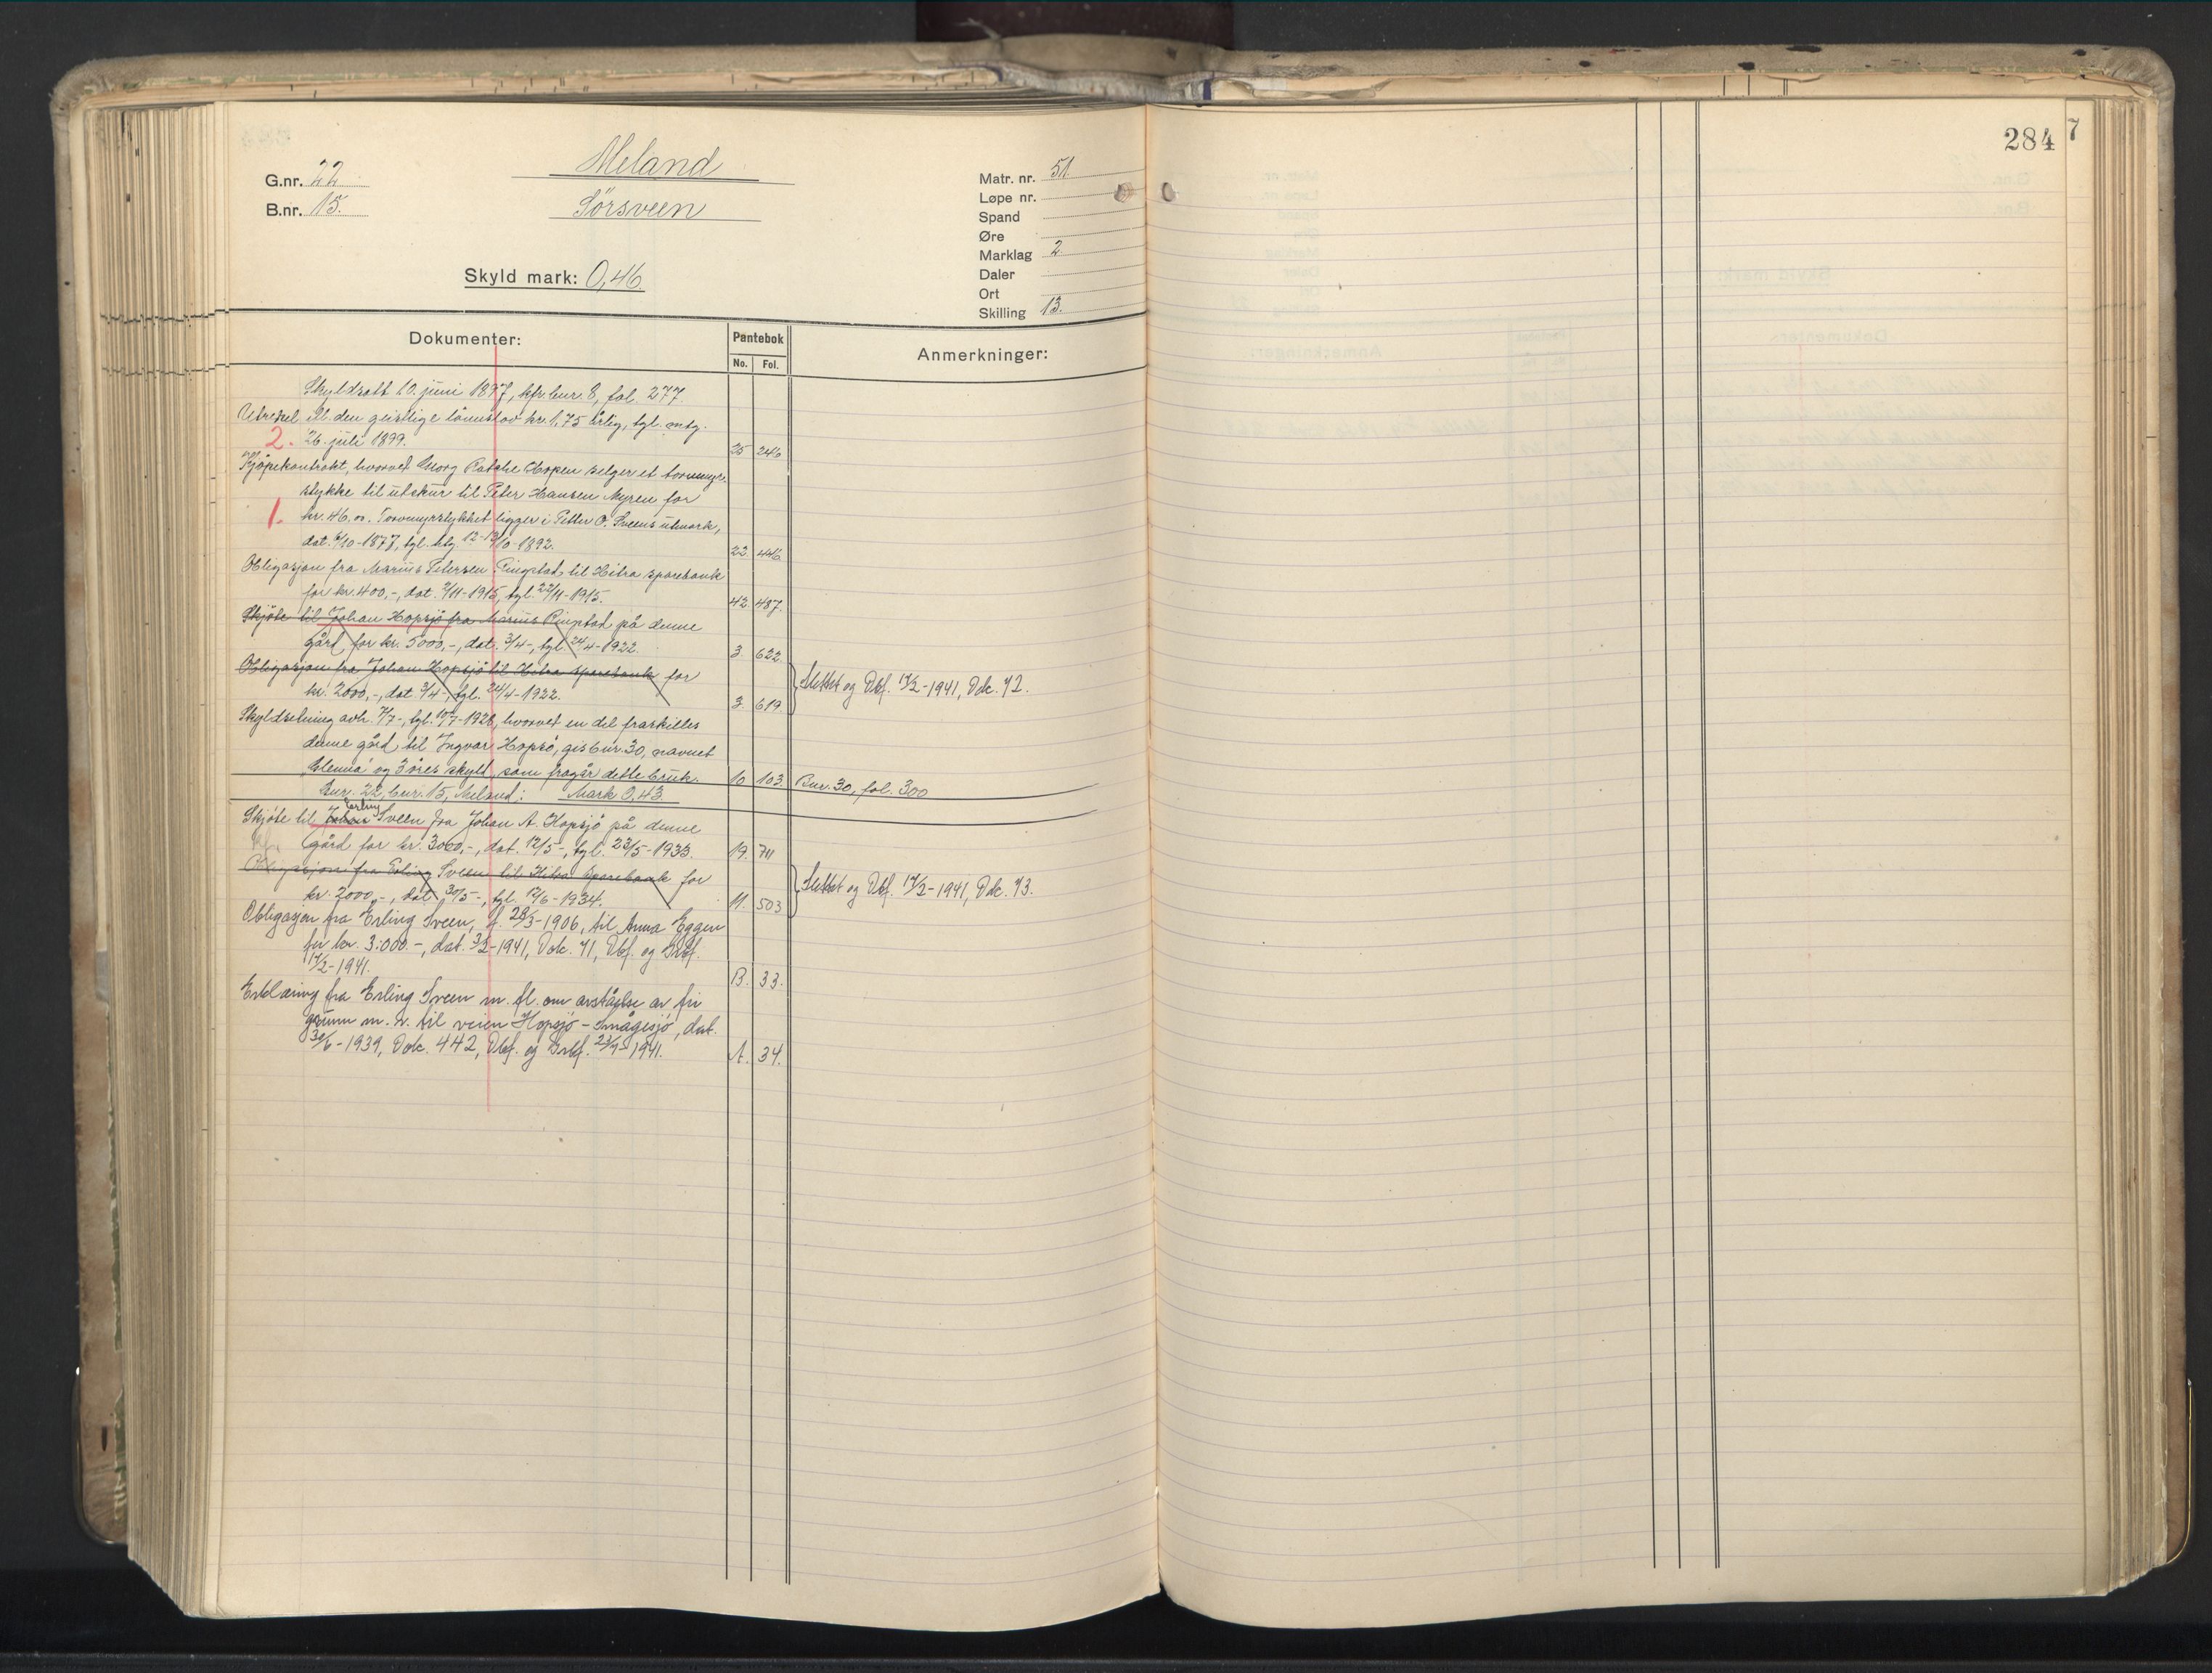 284
7
Meland
G.nr. 22
B.nr. 15.
Sørsveen
Skyld mark: 0,46
Matr. nr. 51.
Løpe nr.
Spand
Øre
Marklag 2
Daler
Ort
Skilling 13.
Dokumenter:
Pantebok
No. Fol.
Anmerkninger:
Skyldsatt 10. juni 1897, kfr. bnr. 8, fol. 277.
til den geistlige kr. 1,75 årlig, tgl. mtg.
2. 26. juli 1899. 25 246
Kjøpekontrakt, hvorved Hopen selger et torvmyr-
stykke til utskur til Peter Hansen Myren for
1. kr. 46.00. Torvmyrstykket ligger i Petter O. Sveens utmark,
dat. 6/10-1877, tgl. 12-13/10-1892. 22. 446.
Obligasjon fra Marius Petersen Ringstad til Hitra sparebank
for kr. 400,-, dat. 9/11-1915, tgl. 22/11-1915. 42. 487.
Skjøte til Johan Hopsjø fra Marius Ringstad på denne
gård for kr. 5000,-, dat. 3/4-, tgl. 24/4-1922. 3. 622
Obligasjon fra Johan Hopsjø til Hitra sparebank for
kr. 2000,-, dat 3/4-, tgl. 24/4-1922. 3. 619.
Slettet og Dbf. 17/2-1941, Dok. 72.
Skyldseining avh. 7/7-, tgl. 10/7-1926, hvorved en del fraskilles
denne gård til Ingvar Hopsø, gis bnr. 30, navnet
"Glenna" og 3 øres skyld, som fragår dette bruk. 10 103. Bnr. 30, fol. 300
Gnr. 22, bnr. 15, Meland: Mark 0,43
Erling
Skjøte til Johan Sveen fra Johan A. Hopsjø på denne
gård for kr. 3000,-, dat. 12/5-, tgl. 23/5-1933. 19. 711
Obligasjon fra Erling Sveen til Hitra Sparebank for
kr. 2000,-, dat 30/5-, tgl. 12/6-1934. 11. 503
Slettet og Dbf. 17/2-1941, Dok. 73.
Obligasjon fra Erling Sveen, f. 28/3-1906, til Anna Eggen
for kr. 3.000.-, dat. 3/2-1941, Dok. 71, Dbf. og Grbf.
17/2-1941. B. 33.
Erklæring fra Erling Sveen m. fl. om avståelse av fri
grunn m. v. til veien Hopsjø - Smågesjø, dat.
30/6-1939, Dok. 442, Dbf. og Grbf. 23/9-1941. A. 34.